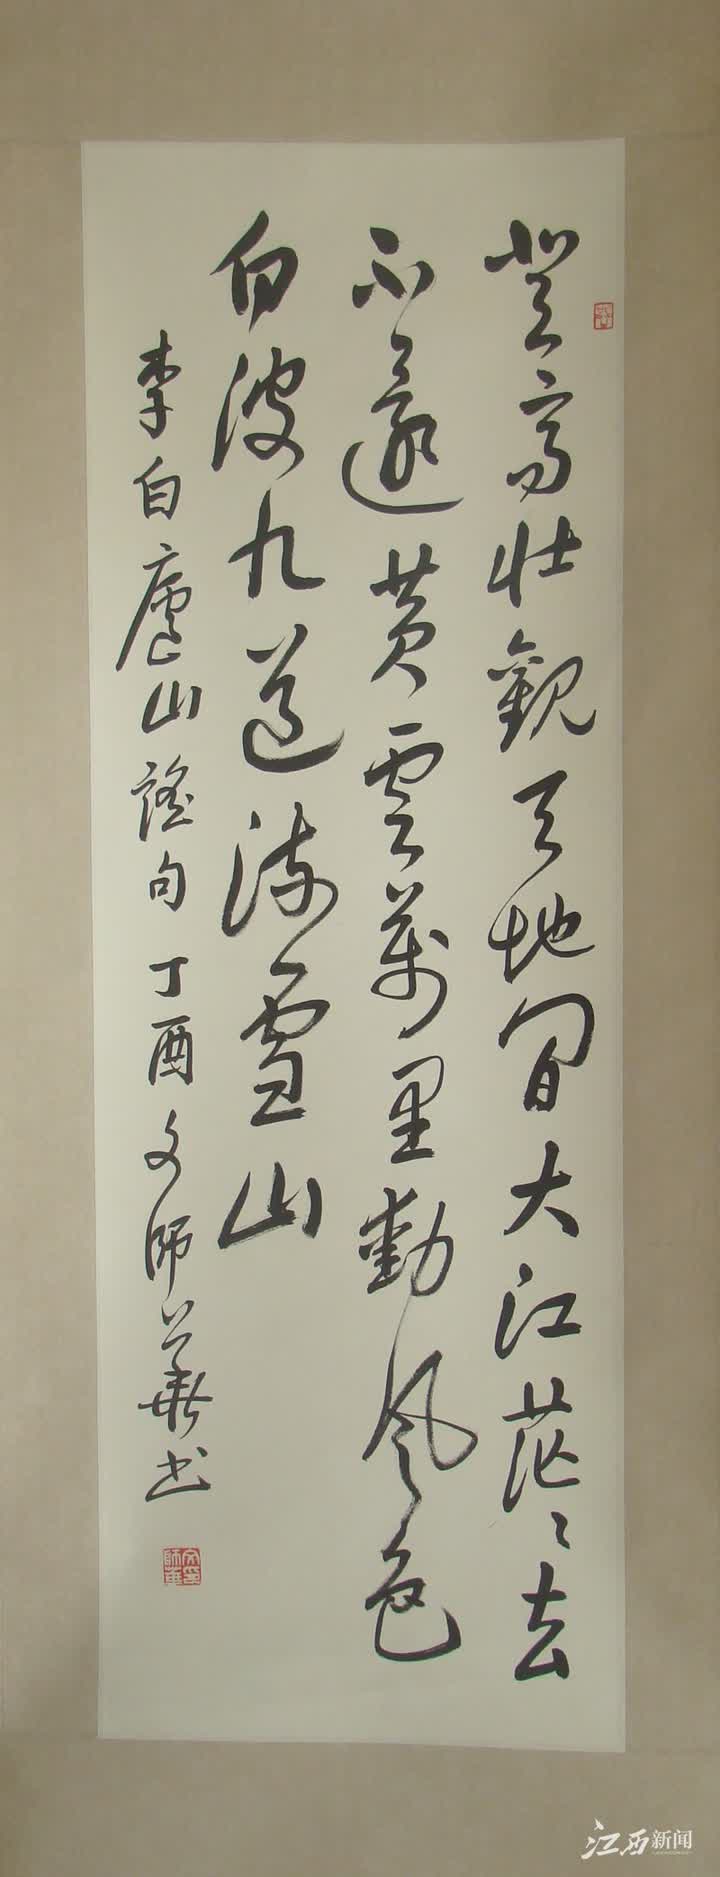 登高壯觀天地間大江茫々去
不還黄雲萬里動風色
白波九道流雪山
李白廬山謠句 丁酉文師華書
文師華印
江西新闻